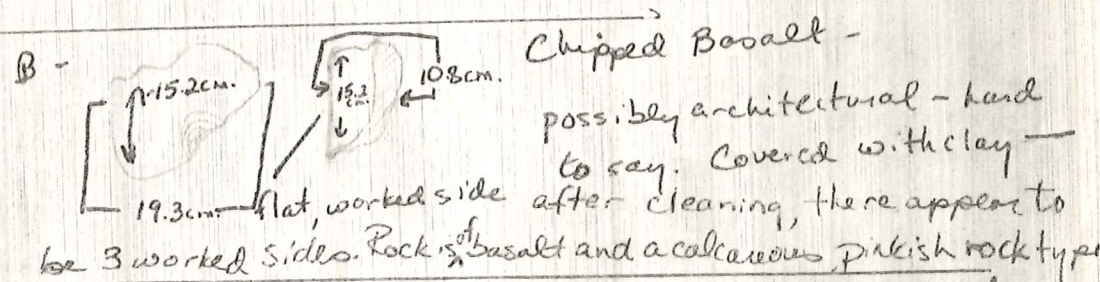 B -
15.2cm.
19.3cm.
15.2 cm.
10.8cm.
Chipped Basalt -
possibly architectural - hard
to say. Covered with clay —
flat, worked side after cleaning, there appear to
be 3 worked sides. Rock is of basalt and a calcareous pinkish rock type